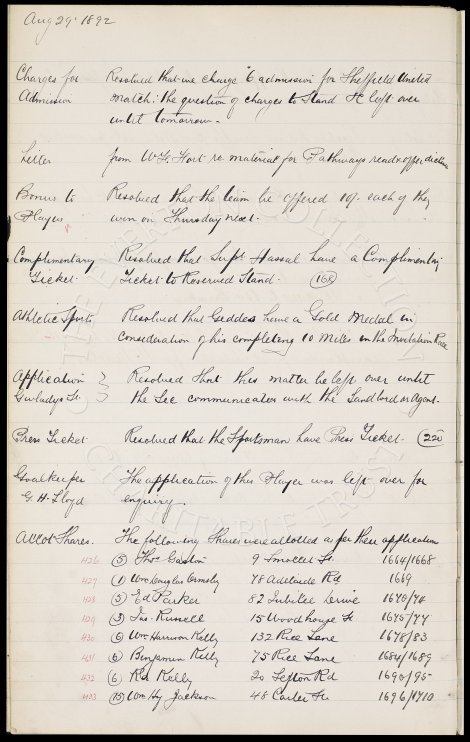 Aug 29. 1892
Charges for Admission
Resolved that we charge "6 admission for Sheffield United
match: the question of charges to Stand &c left over
until tomorrow.
Letter
from Wm Hart re material for Pathways read & offer
Bonus to Players
Resolved that the team be offered 10/- each if they
win on Thursday next.
Complimentary Ticket
Resolved that Supt Hassal have a Complimentary
Ticket to Reserved Stand. (168)
Athletic Sports
Resolved that Geddes have a Gold Medal in
consideration of his completing 10 Miles in the Invitation Race
Application Gwladys St.
Resolved that this matter be left over until
the Sec communicates with the Landlord or Agent.
Press Ticket
Resolved that the Sportsman have Press Ticket. (220)
Goalkeeper G. H. Lloyd
The application of this Player was left over for
enquiry.
Allot Shares.
The following Shares were allotted as per their application
426 (5) Thos Gaston 9 Smollet St. 1664/1668
427 (1) Wm Douglas Ormsby 78 Adelaide Rd 1669
428 (5) Ed Parker 82 Jubilee Drive 1670/74
429 (3) Jas. Russell 15 Woodhouse St 1675/77
430 (6) Wm Harrison Kelly 132 Rice Lane 1678/83
431 (6) Benjamin Kelly 75 Rice Lane 1684/1689
432 (6) Rd Kelly 20 Sefton Rd 1690/95
433 (15) Wm Hy Jackson 48 Carter St 1696/1710
THE EVERTON COLLECTION
CHARITABLE TRUST